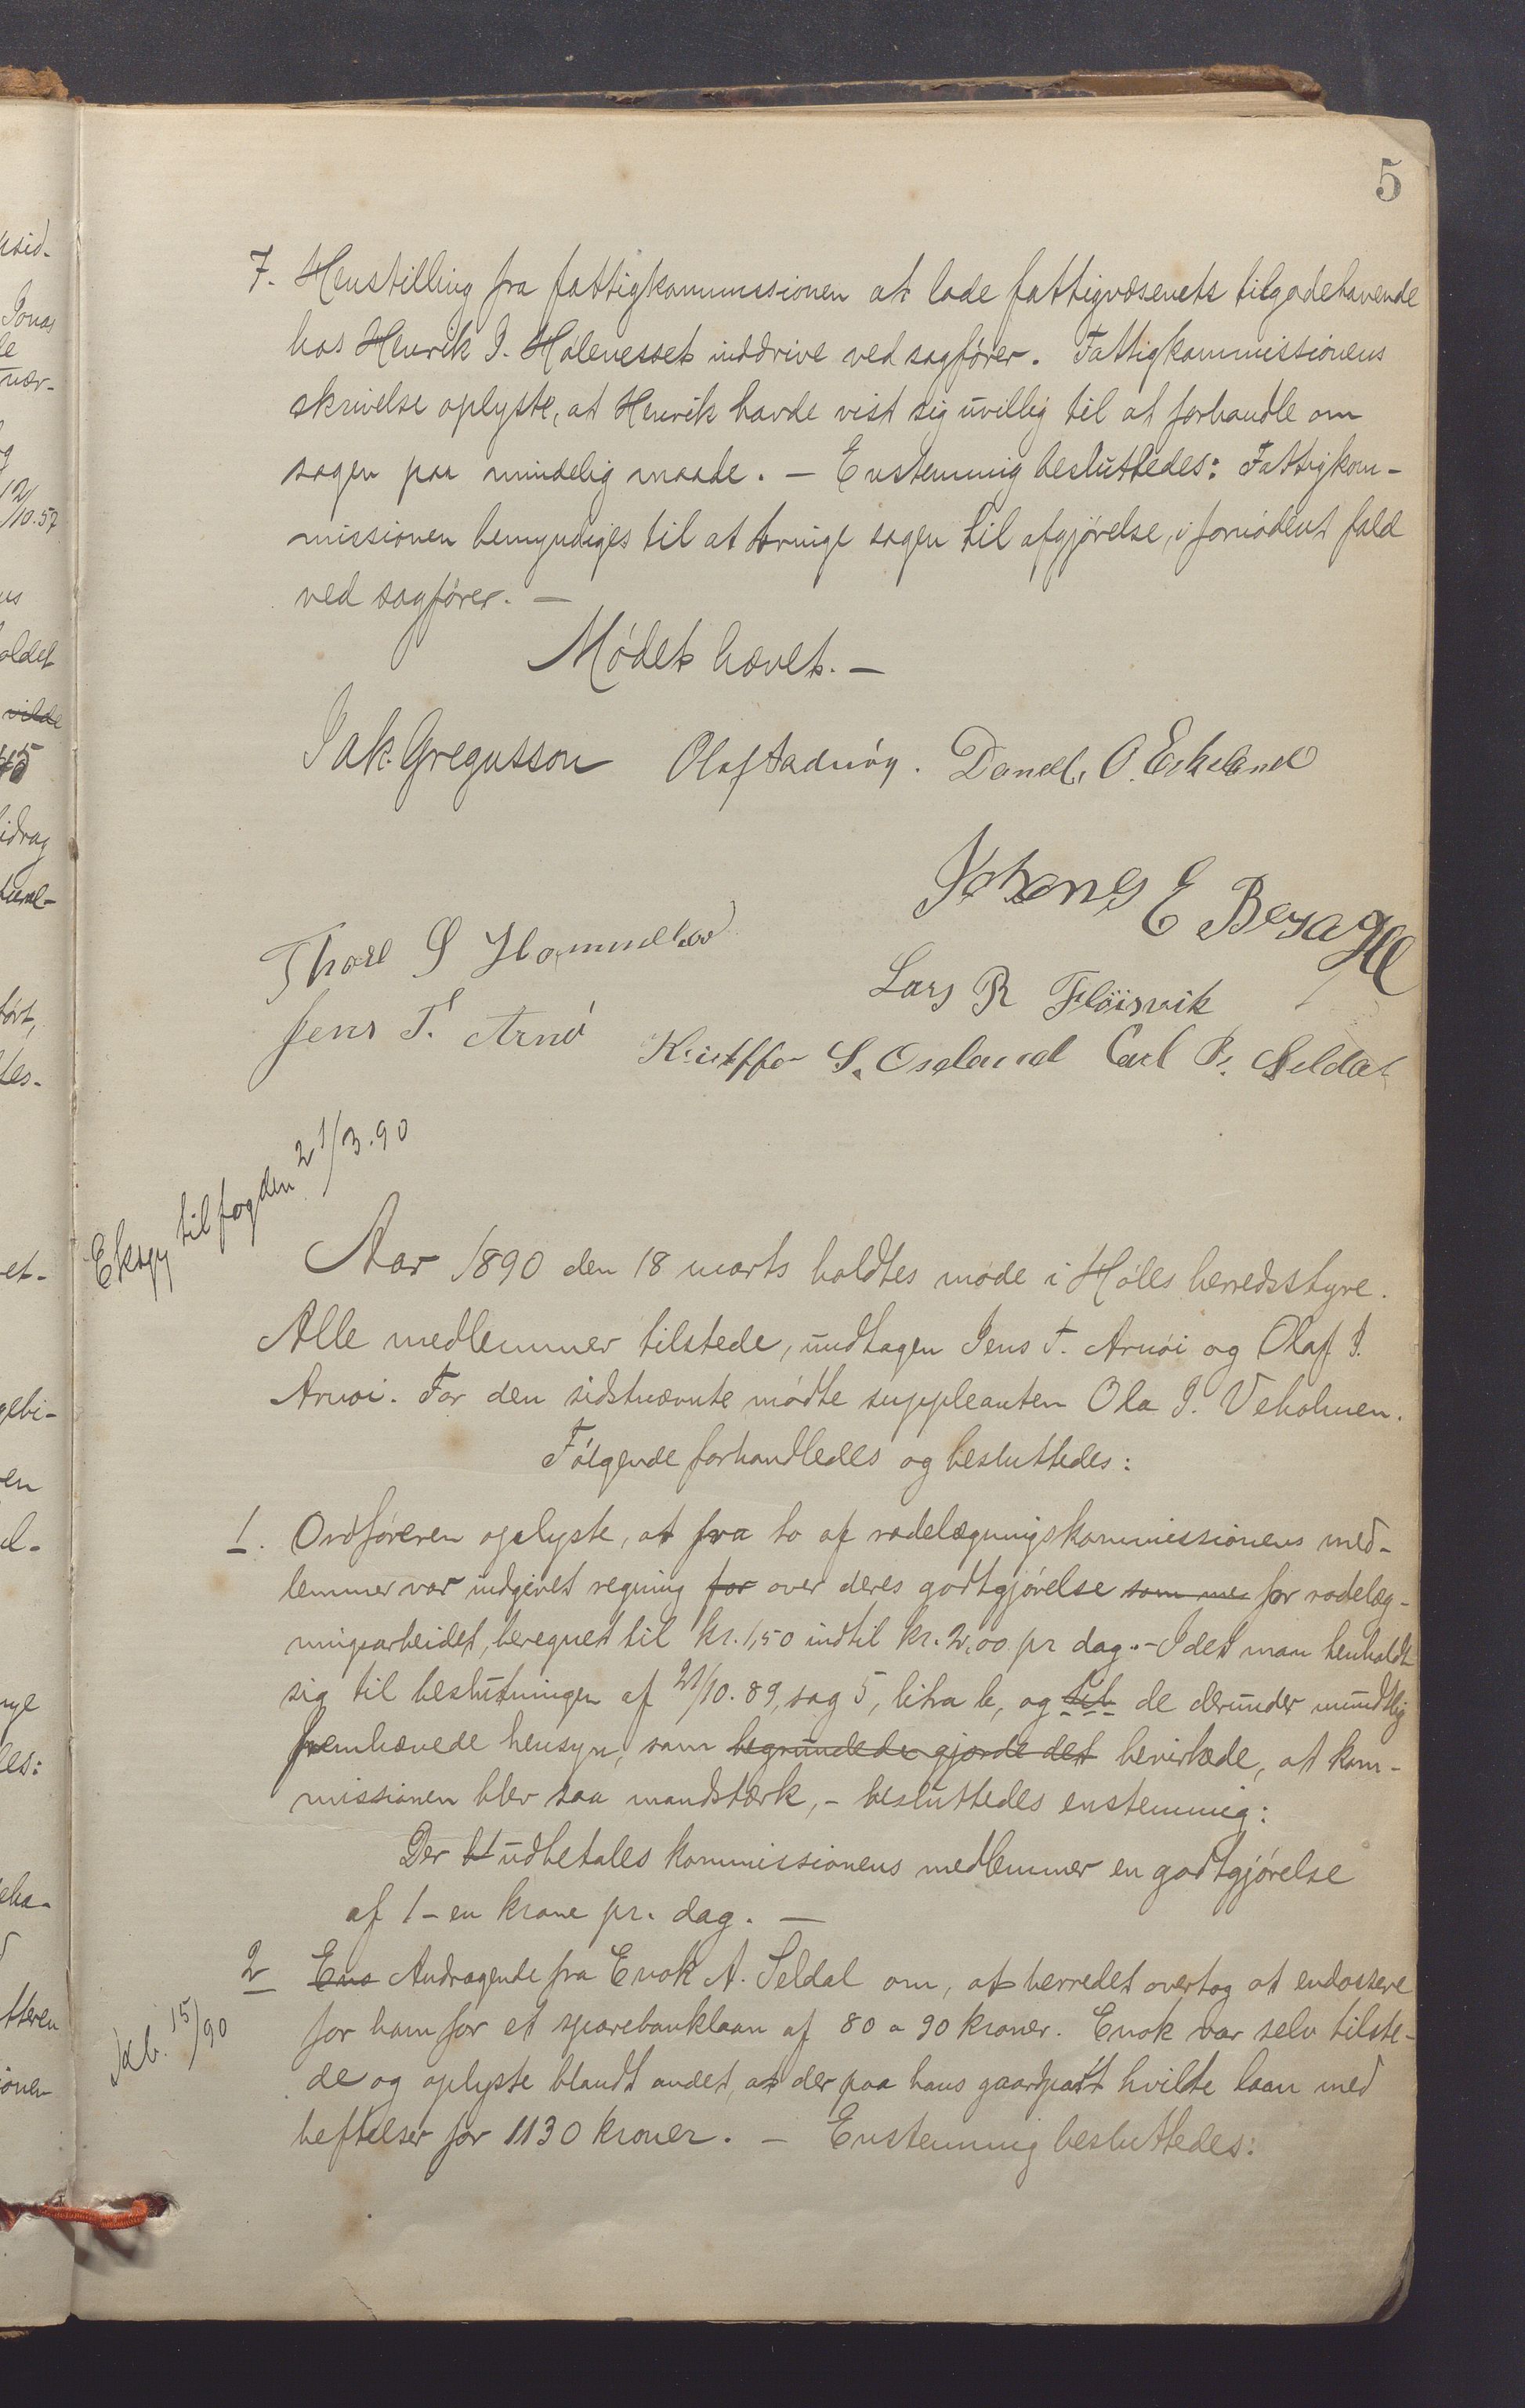 5
7. Henstilling fra fattigkommissionen at lade fattigvæsenets tilgodehavende
hos Henrik J. Holenesset inddrive ved sagfører. Fattigkommissionens
skrivelse oplyste, at Henrik havde vist sig uvillig til at forhandle om
sagen paa mindelig maade. — Enstemmig besluttedes: Fattigkom-
missionen bemyndiges til at bringe sagen til afgjørelse, i fornødent fald
ved sagfører. —
Mødet hævet. —
Jak. Gregusson Olaf Hadnøy. Daniel O. Eskeland
Johannes E Bersagel
Thore S Hommeland
Lars R Fløisvik
Jens T. Arnø
Kristoffer S. Oseland Carl P. Seldal
Eksp. til fogden 21/3.90
Aar 1890 den 18 marts holdtes møde i Høles herredsstyre.
Alle medlemmer tilstede, undtagen Jens T. Arnøi og Olaf J.
Arnøi. For den sidstnævnte mødte suppleanten Ola J. Veholmen.
Følgende forhandledes og besluttedes:
1. Ordføreren oplyste, at fra to af rodelægningskommissionens med-
lemmer var indgivet regning for over deres godtgjørelse som me for rodelæg-
ningsarbeidet, beregnet til kr. 1,50 indtil kr. 2,00 pr dag. - Idet man henholdt
sig til beslutningen af 21/10.89, sag 5, litra b, og til de derunder mundtlig
fremhævede hensyn, som begrundede gjorde det bevirkede, at kom-
missionen blev saa mandstærk, - besluttedes enstemmig:
Der bl udbetales kommissionens medlemmer en godtgjørelse
af 1 - en krone pr. dag. —
2 Eno Andragende fra Enok A. Seldal om, at herredet overtog at endossere
for ham for et sparebanklaan af 80 a 90 kroner. Enok var selv tilste-
15/90
de og oplyste blandt andet, at der paa hans gaardpart hvilte laan med
heftelser for 1130 kroner. — Enstemmig besluttedes: